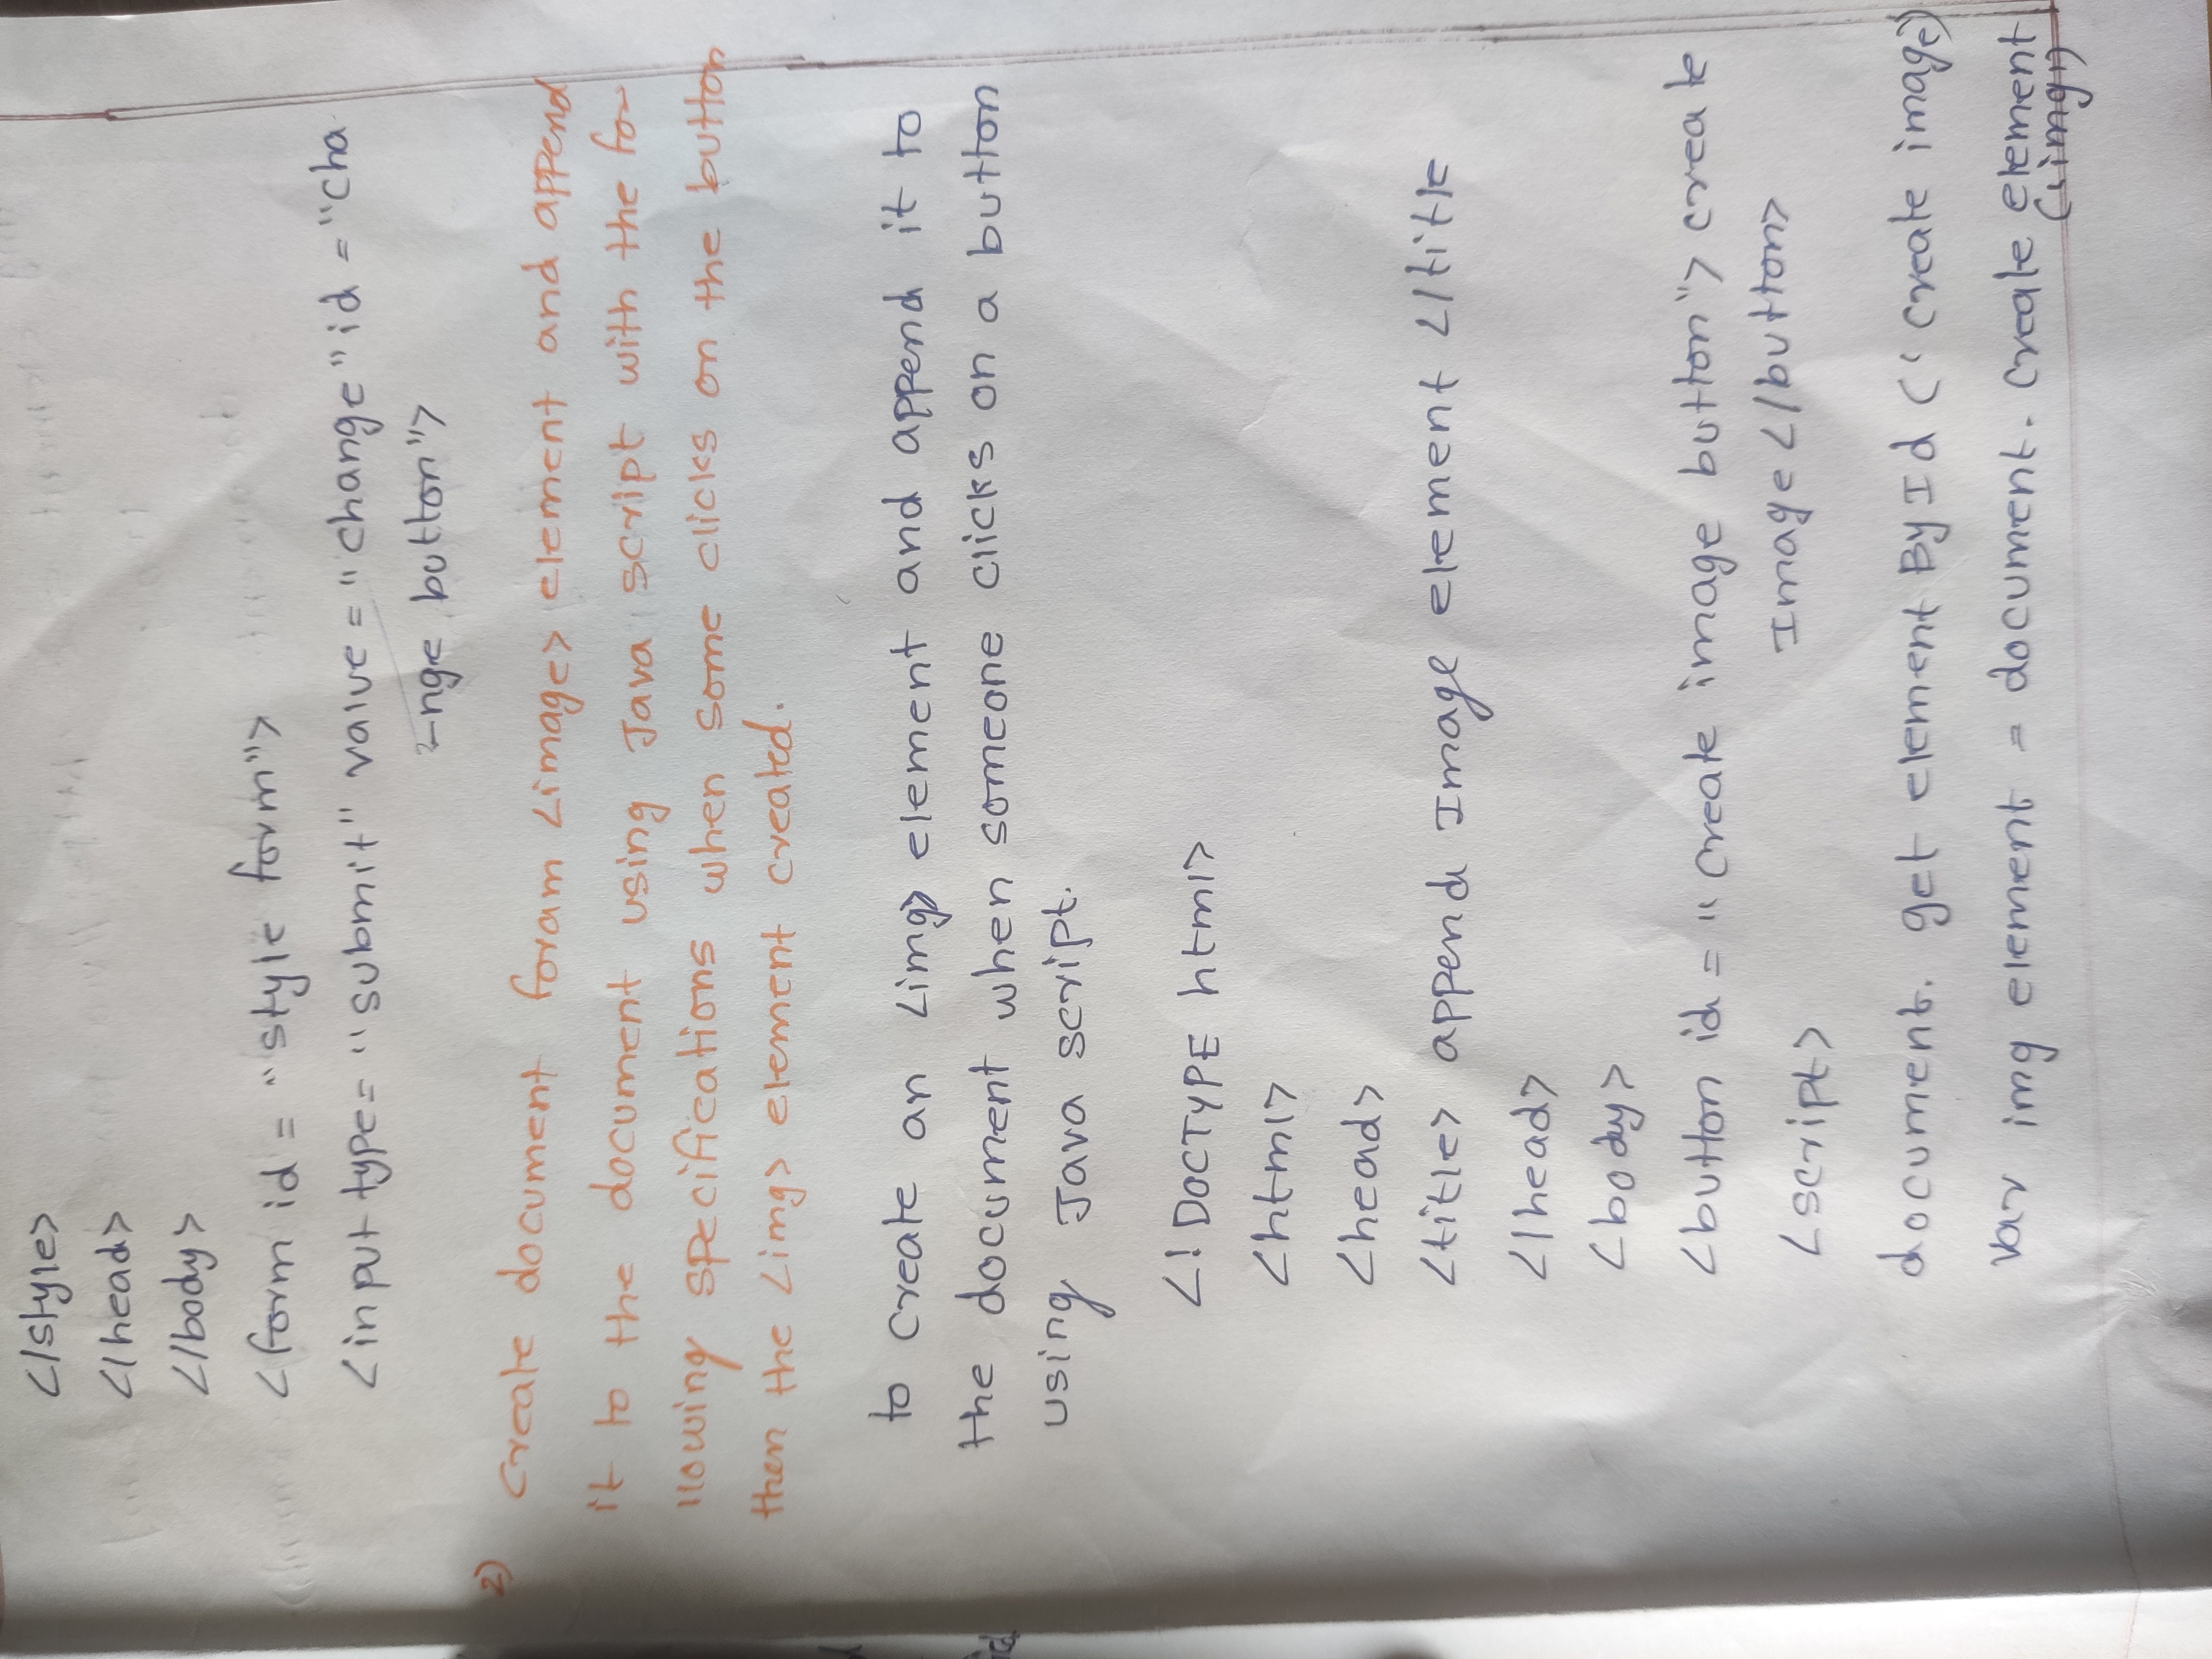 </style>
</head>
</body>
<form id = "style form">
<input type= "submit" value = "change" id = "cha
-nge button">
2) Create document foram <image> element and append
it to the document using Java script with the fo-
llowing specifications when some clicks on the button
then the <img> element created.
to create an <img> element and append it to
the document when someone clicks on a button
using Java script.
<!DOCTYPE html>
<html>
<head>
<title> append Image element </title
</head>
<body>
<button id = "create image button"> create
Image </button>
<script>
document. get element By Id (' create image')
var img element = document. create element
('img')